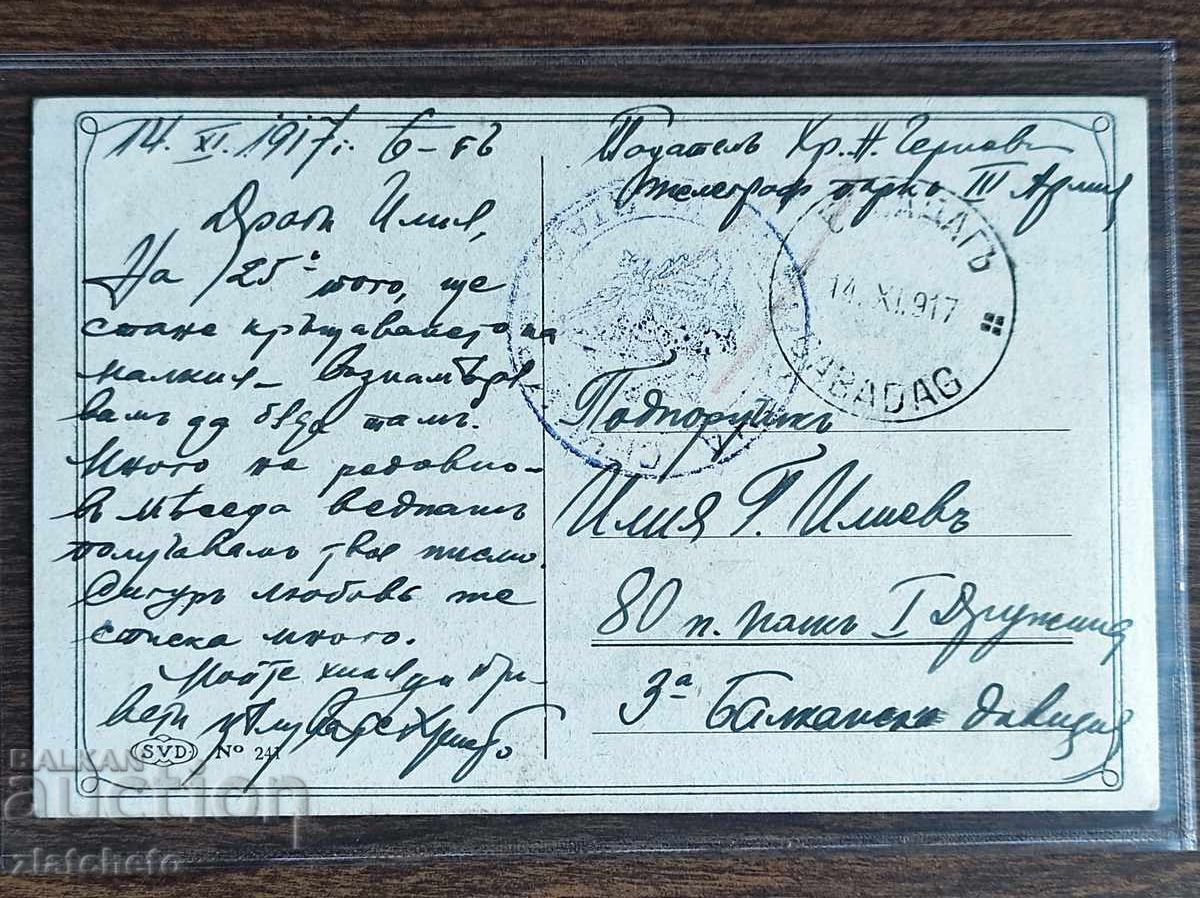 14. XI. 1917 г.
Драги Илия,
На 25 того, ще
стане кръщаването на
малкия – възнамѣря-
вамъ да бѫда тамъ.
Много на редовно –
въ мѣсеца веднажъ
получавамъ твое писмо.
Сигуръ любовь те
стиска много.
Моите хиляди при-
вети
цѣлувки Христо
S.V.D. No 241
Подател Хр. Н. Чернев
Телеграф паркъ III Армия
БАБАДАГЪ
14. XI. 917
BABADAG
Подпоручикъ
Илия Г. Илиевъ
80 п. полкъ I Дружина
3а Балканска дивизия
BALKAN
auction
zlatcheto